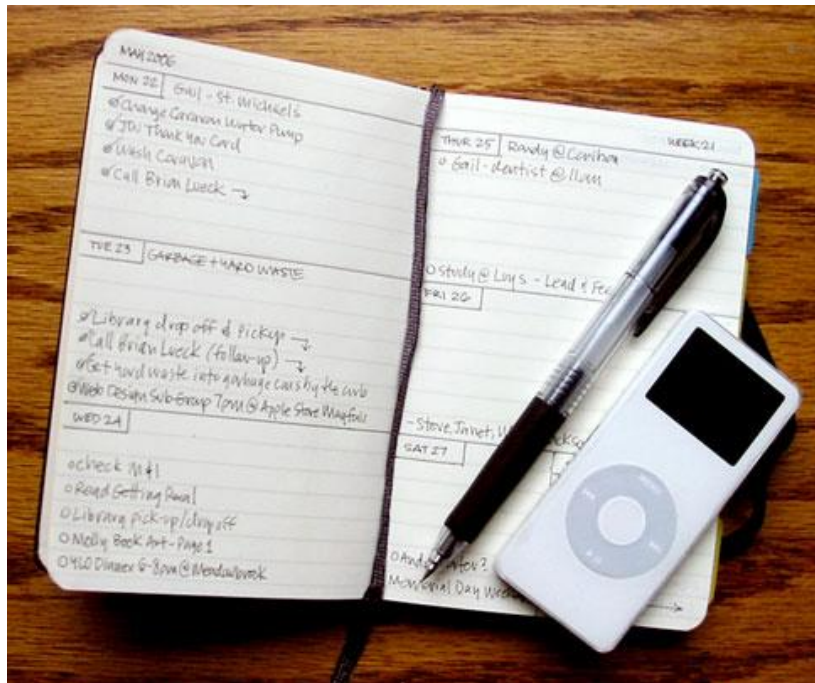 MAY 2006
MON 22 Gail - St. Michaels
Change Caravan Water Pump
JW Thank You Card
Wash Caravan
Call Brian Lueck →
TUE 23 GARBAGE + YARD WASTE
Library drop off & pickup →
Call Brian Lueck (follow-up) →
Get yard waste into garbage cans by the curb
Web Design Sub-Group 7pm @ Apple Store Mayfair
WED 24
check M&I
Read Getting Real
Library pick-up/drop off
Molly Book Art - Page 1
4th Dinner 6-8pm @ Meadowbrook
WEEK 21
THUR 25 Randy @ Caribou
Gail - dentist @ 11am
Study @ Luy's - Lead &
FRI 26
- Steve, Janet,
SAT 27
Memorial Day
MENU